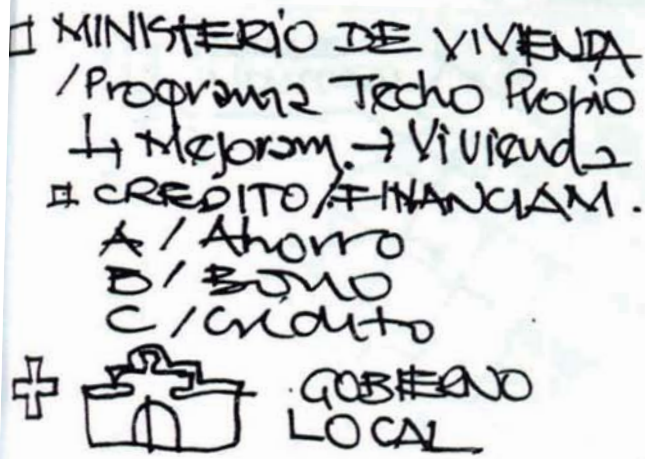 MINISTERIO DE VIVIENDA
/Programa Techo Propio
↳ Mejoram. → Vivienda
CREDITO/FINANCIAM.
A / Ahorro
B / Bono
C / Crédito
GOBIERNO
LOCAL